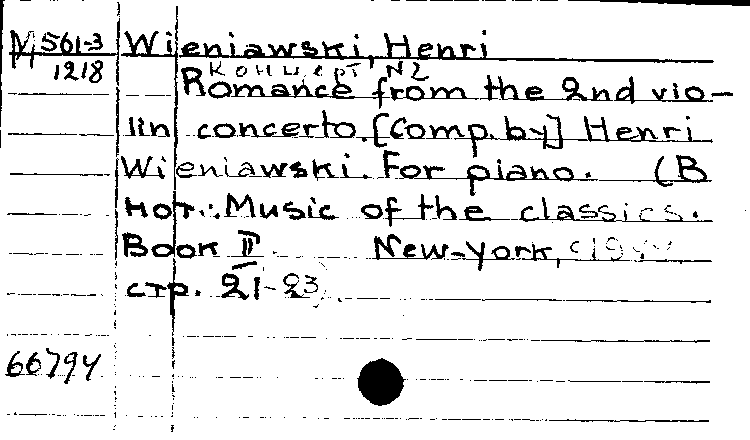 М 561-3 Wieniawski, Henri
1218 Концерт N2
Romance from the 2nd vio-
lin concerto. [Comp. by] Henri
Wieniawski. For piano. (В
нот.: Music of the classics.
Book II. New-York,
стр. 21-23).
66794